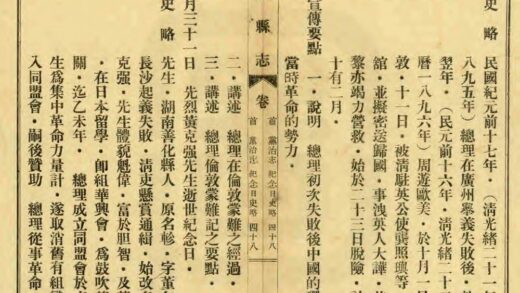 史略 民國紀元前十七年．（清光緒二十一
八九五年）總理在廣州舉義失敗後．
翌年．（民元前十六年 清光緒二十
曆一八九六年）周遊歐美．於十月一
敦．十一日．被清駐英公使龔照璵等
館．並擬密送歸國．事洩英人大譁．
黎亦竭力營救．始於二十三日脫險．
十有二月．
宣傳要點 一．說明 總理初次失敗後中國的
當時革命的勢力．
縣志 卷首 黨治志 紀念日史略 四十八
首 黨治志 紀念日史略 四十八
二．講述 總理在倫敦蒙難之經過．
三．講述 總理倫敦蒙難記之要點．
月三十一日 先烈黃克强先生逝世紀念日．
史略 先生．湖南善化縣人．原名軫．字董
長沙起義失敗．清吏懸賞通緝．始改
克强．先生體貌魁偉．富於胆智．及
．在日本留學．卽組華興會．爲鼓吹
關．迄乙未年． 總理成立同盟會於
生爲集中革命力量計．遂取消舊有組
入同盟會．嗣後贊助 總理從事革命